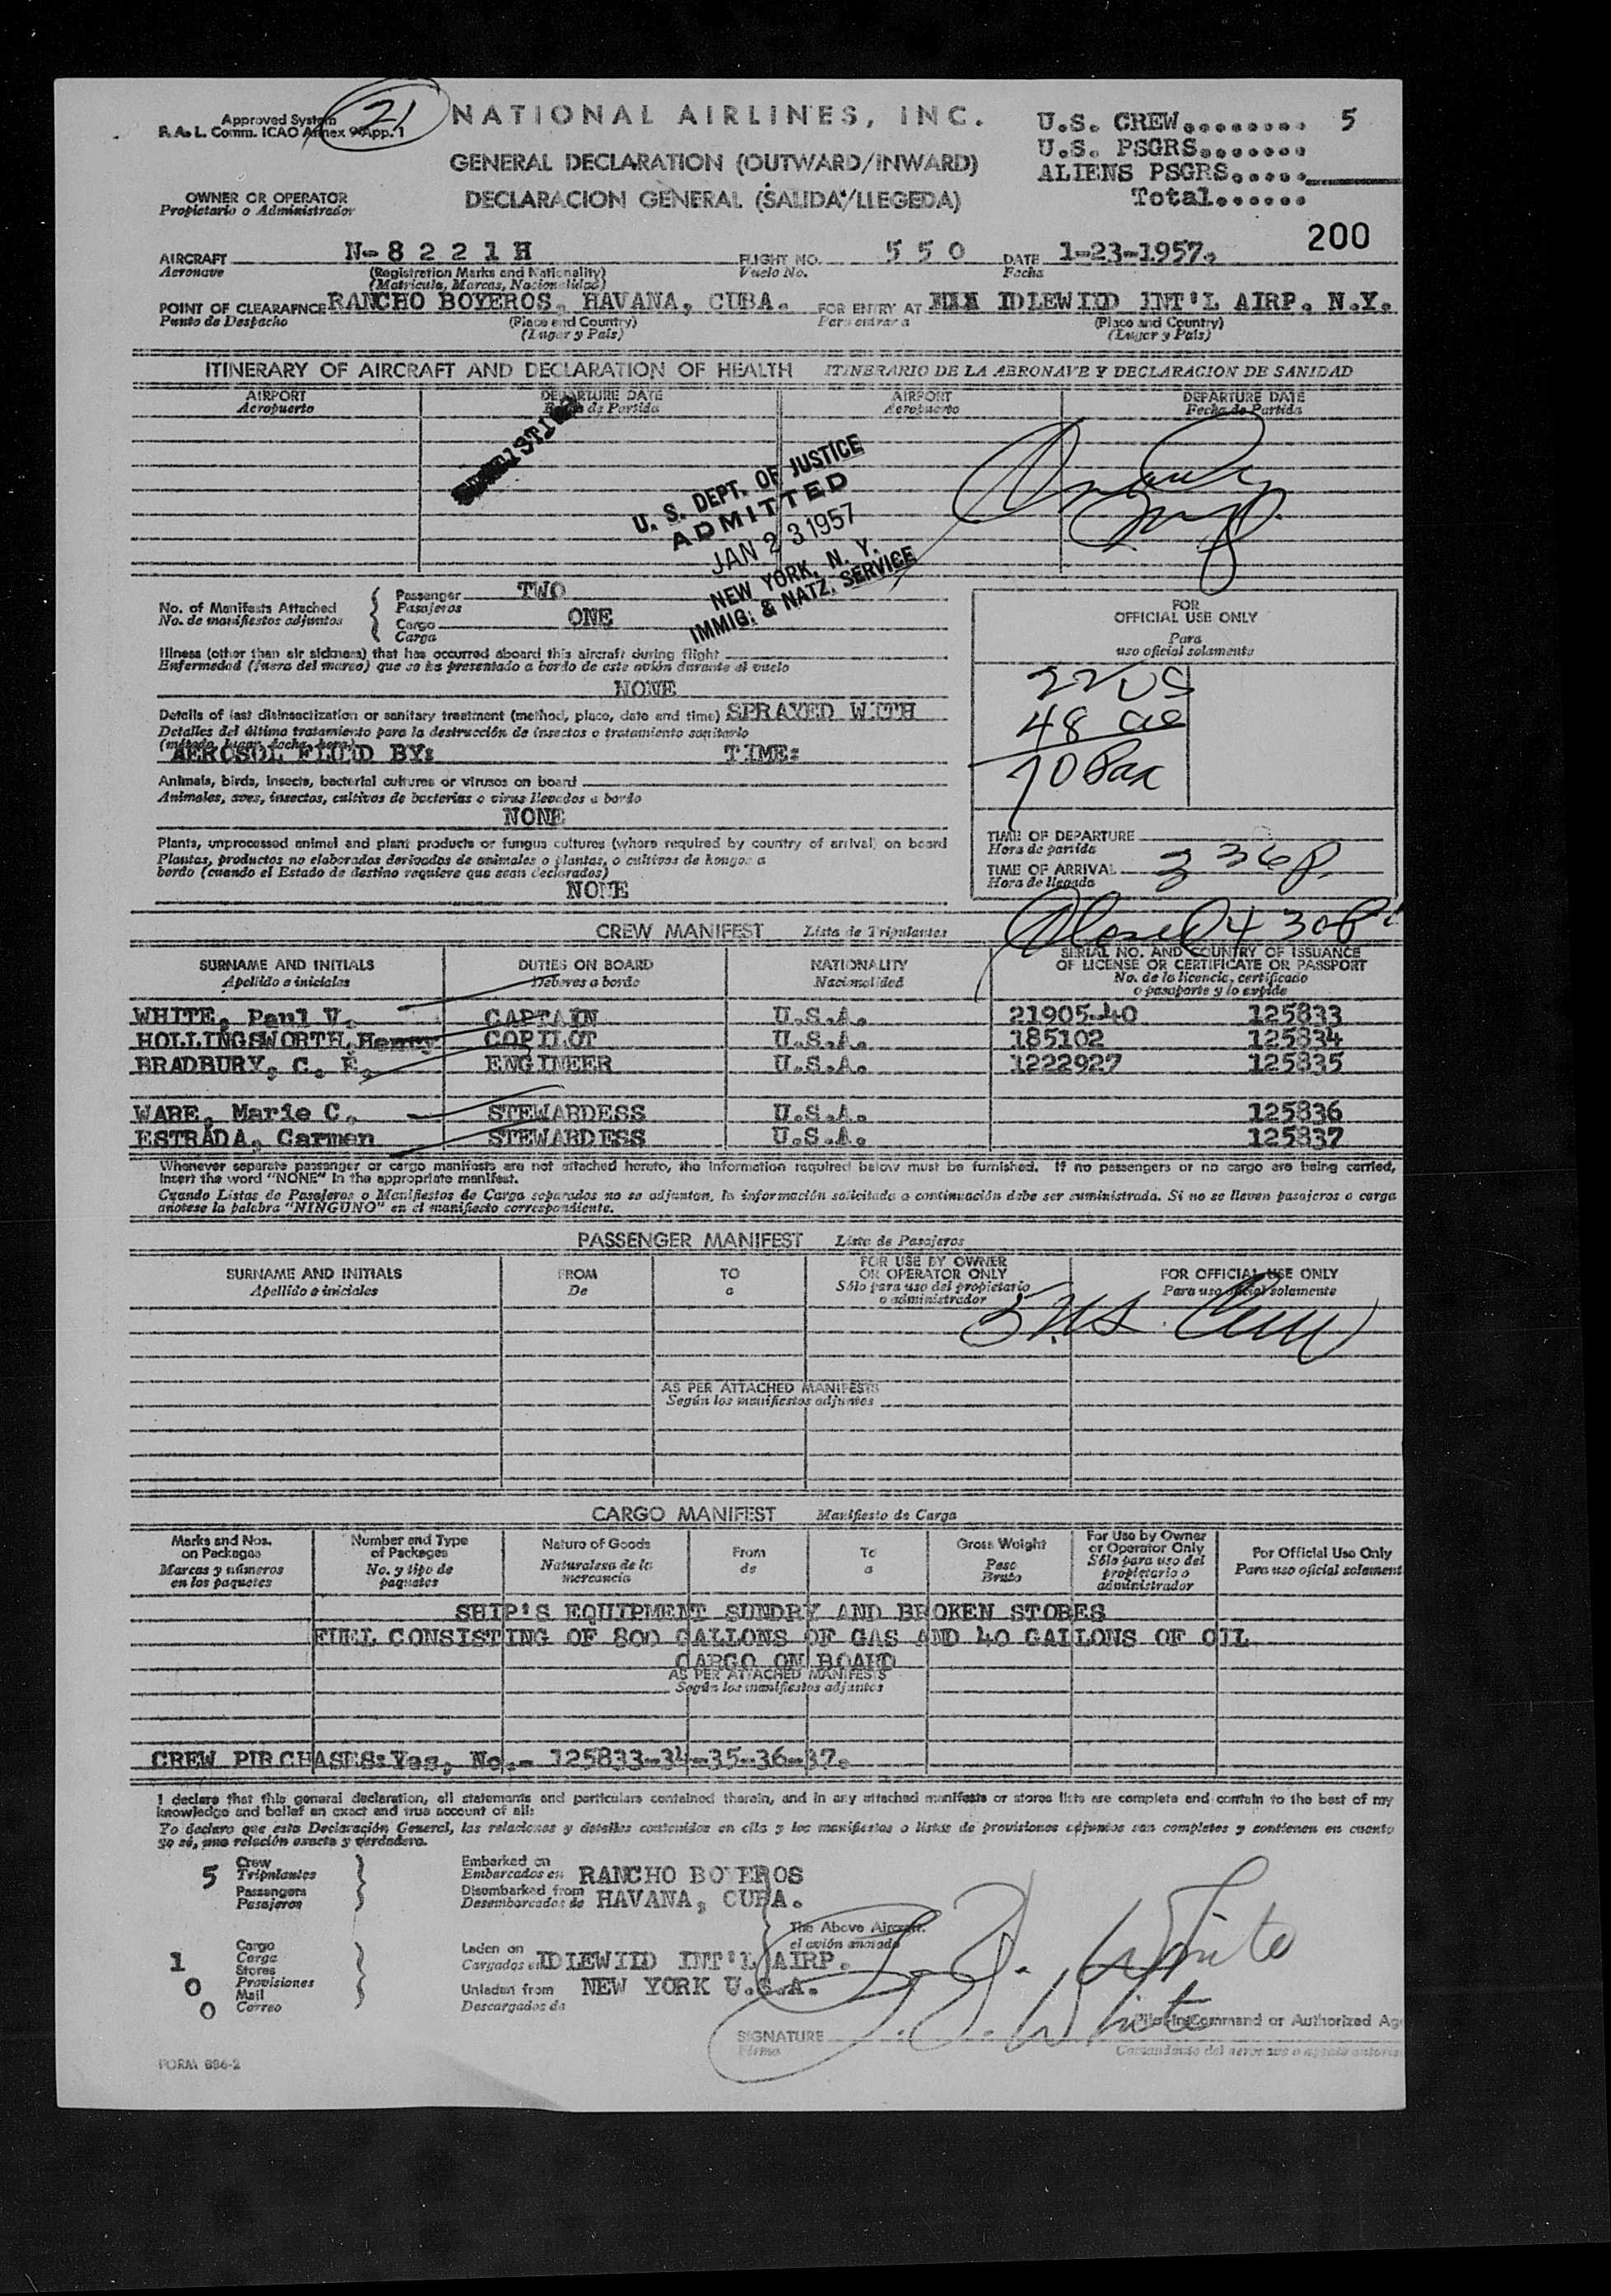 Approved System
R. A. L. Comm. ICAO Annex 9 App. 1
21
NATIONAL AIRLINES, INC.
GENERAL DECLARATION (OUTWARD/INWARD)
DECLARACION GENERAL (SALIDA/LLEGEDA)
U.S. CREW........ 5
U.S. PSGRS.......
ALIENS PSGRS.....
Total......
OWNER OR OPERATOR
Propietario o Administrador
200
AIRCRAFT N-8 2 2 1 H FLIGHT NO. 5 5 0 DATE 1-23-1957.
Aeronave (Registration Marks and Nationality) Vuelo No. Fecha
(Matricula, Marcas, Nacionalidad)
POINT OF CLEARAFNCE RANCHO BOYEROS, HAVANA, CUBA. FOR ENTRY AT IDLEWILD INT'L AIRP. N.Y.
Punto de Despacho (Place and Country) Para entrar a (Place and Country)
(Lugar y Pais) (Lugar y Pais)
ITINERARY OF AIRCRAFT AND DECLARATION OF HEALTH ITINERARIO DE LA AERONAVE Y DECLARACION DE SANIDAD
AIRPORT DEPARTURE DATE AIRPORT DEPARTURE DATE
Aeropuerto Fecha de Partida Aeropuerto Fecha de Partida
U. S. DEPT. OF JUSTICE
ADMITTED
JAN 23 1957
NEW YORK, N. Y.
IMMIG. & NATZ. SERVICE
No. of Manifests Attached Passenger TWO
No. de manifiestos adjuntos Pasajeros
Cargo ONE
Carga
Illness (other than air sickness) that has occurred aboard this aircraft during flight
Enfermedad (fuera del mareo) que se ha presentado a bordo de este avión durante el vuelo
NONE
Details of last disinsectization or sanitary treatment (method, place, date and time) SPRAYED WITH
Detalles del último tratamiento para la destrucción de insectos o tratamiento sanitario
(método, lugar, fecha, hora)
AEROSOL FLUD BY: TIME:
Animals, birds, insects, bacterial cultures or viruses on board
Animales, aves, insectos, cultivos de bacterias o virus llevados a bordo
NONE
Plants, unprocessed animal and plant products or fungus cultures (where required by country of arrival) on board
Plantas, productos no elaborados derivados de animales o plantas, o cultivos de hongos a
bordo (cuando el Estado de destino requiere que sean declarados)
NONE
FOR
OFFICIAL USE ONLY
Para
uso oficial solamente
22 US
48 ae
70 Pax
TIME OF DEPARTURE
Hora de partida
TIME OF ARRIVAL 3 36 P.
Hora de llegada
Closed 4 30 P
CREW MANIFEST Lista de Tripulantes
SURNAME AND INITIALS DUTIES ON BOARD NATIONALITY SERIAL NO. AND COUNTRY OF ISSUANCE
OF LICENSE OR CERTIFICATE OR PASSPORT
Apellido e iniciales Deberes a bordo Nacionalidad No. de la licencia, certificado
o pasaporte y lo expide
WHITE, Paul V. CAPTAIN U.S.A. 21905-40 125833
HOLLINGSWORTH, Henry COPILOT U.S.A. 185102 125834
BRADBURY, C. E. ENGINEER U.S.A. 1222927 125835
WARE, Marie C. STEWARDESS U.S.A. 125836
ESTRADA, Carmen STEWARDESS U.S.A. 125837
Whenever separate passenger or cargo manifests are not attached hereto, the information required below must be furnished. If no passengers or no cargo are being carried,
insert the word "NONE" in the appropriate manifest.
Cuando Listas de Pasajeros o Manifiestos de Carga separados no se adjuntan, la información solicitada a continuación debe ser suministrada. Si no se lleven pasajeros o carga
anotese la palabra "NINGUNO" en el manifiesto correspondiente.
PASSENGER MANIFEST Lista de Pasajeros
SURNAME AND INITIALS FROM TO FOR USE BY OWNER FOR OFFICIAL USE ONLY
OR OPERATOR ONLY
Apellido e iniciales De a Sólo para uso del propietario Para uso oficial solamente
o administrador
5 US. Crew
AS PER ATTACHED MANIFESTS
Según los manifiestos adjuntos
CARGO MANIFEST Manifiesto de Carga
Marks and Nos. Number and Type Nature of Goods From To Gross Weight For Use by Owner For Official Use Only
on Packages of Packages or Operator Only
Marcas y números No. y tipo de Naturalesa de la de a Peso Sólo para uso del Para uso oficial solament
en los paquetes paquetes mercancia Bruto propietario o
administrador
SHIP'S EQUIPMENT SUNDRY AND BROKEN STORES
FUEL CONSISTING OF 800 GALLONS OF GAS AND 40 GALLONS OF OIL
CARGO ON BOARD
AS PER ATTACHED MANIFESTS
Según los manifiestos adjuntos
CREW PURCHASES: Yes, No.- 125833-34-35-36-37.
I declare that this general declaration, all statements and particulars contained therein, and in any attached manifests or stores lists are complete and contain to the best of my
knowledge and belief an exact and true account of all:
Yo declaro que esta Declaración General, las relaciones y detalles contenidos en ella y los manifiestos o listas de provisiones adjuntos son completos y contienen en cuanto
yo sé, una relación exacta y verdadera.
5 Crew Embarked on RANCHO BOYEROS
Tripulantes Embarcados en
Passengers Disembarked from HAVANA, CUBA.
Pasajeros Desembarcados de
The Above Aircraft.
el avión anotado
Cargo Laden on IDLEWILD INT'L AIRP.
1 Carga Cargados en
Stores
0 Provisiones Unladen from NEW YORK U.S.A.
Mail
0 Correo Descargados de
P. V. White
P. V. White
SIGNATURE Pilot in Command or Authorized Ag
Firma Comandante del aeronave o agente autoris
FORM 886-2